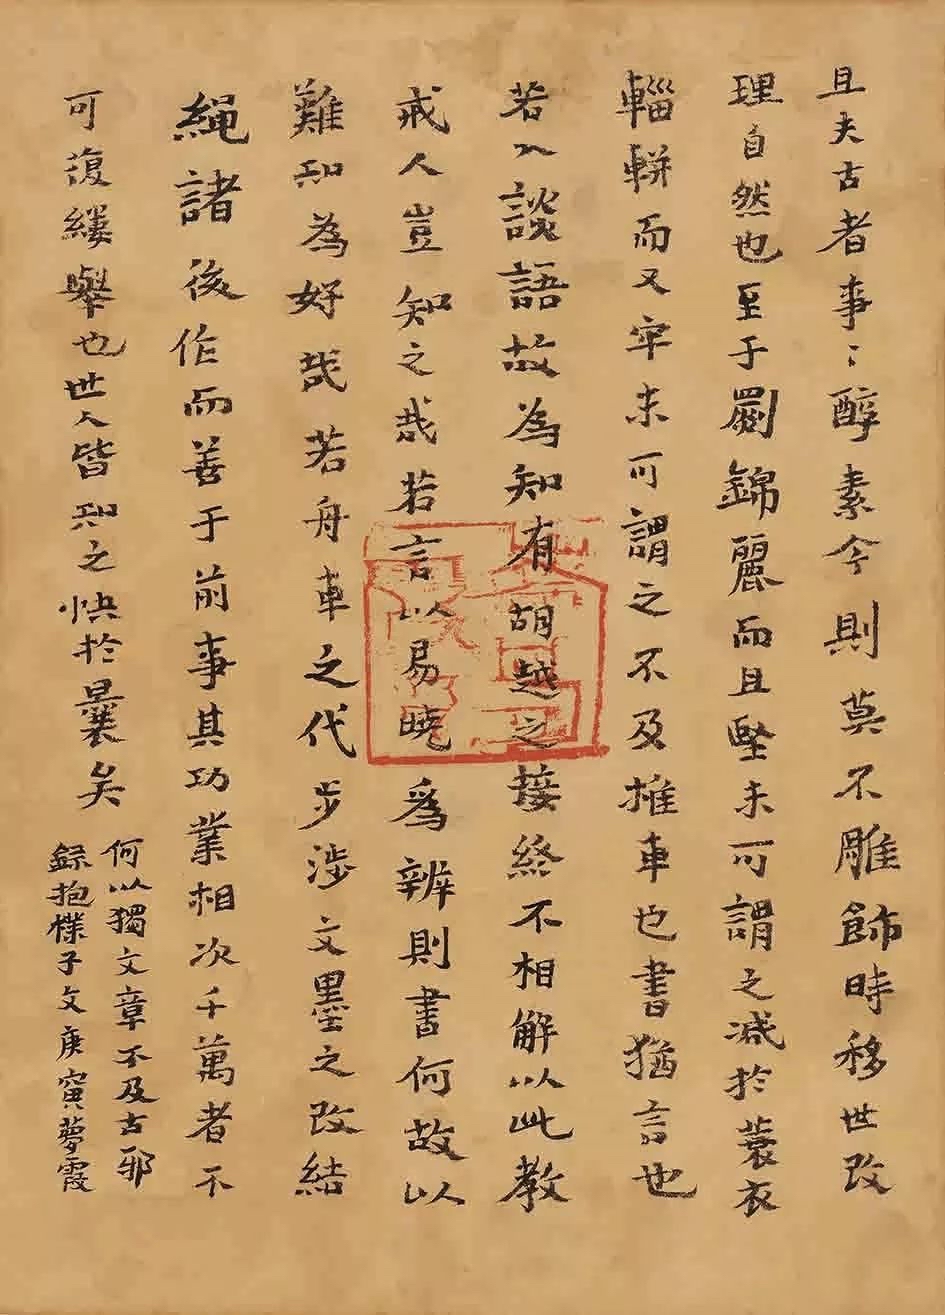 且夫古者事〻醇素今則莫不雕飾時移世改
理自然也至于罽錦麗而且堅未可謂之減於蓑衣
輜軿而又牢未可謂之不及推車也書猶言也
若入談語故為知有胡越之接終不相解以此教
戒人豈知之哉若言以易曉爲辨則書何故以
難知為好哉若舟車之代步涉文墨之改結
繩諸後作而善于前事其功業相次千萬者不
可復縷舉也世人皆知之快於曩矣
何以獨文章不及古邪
録抱樸子文庚寅夢霞